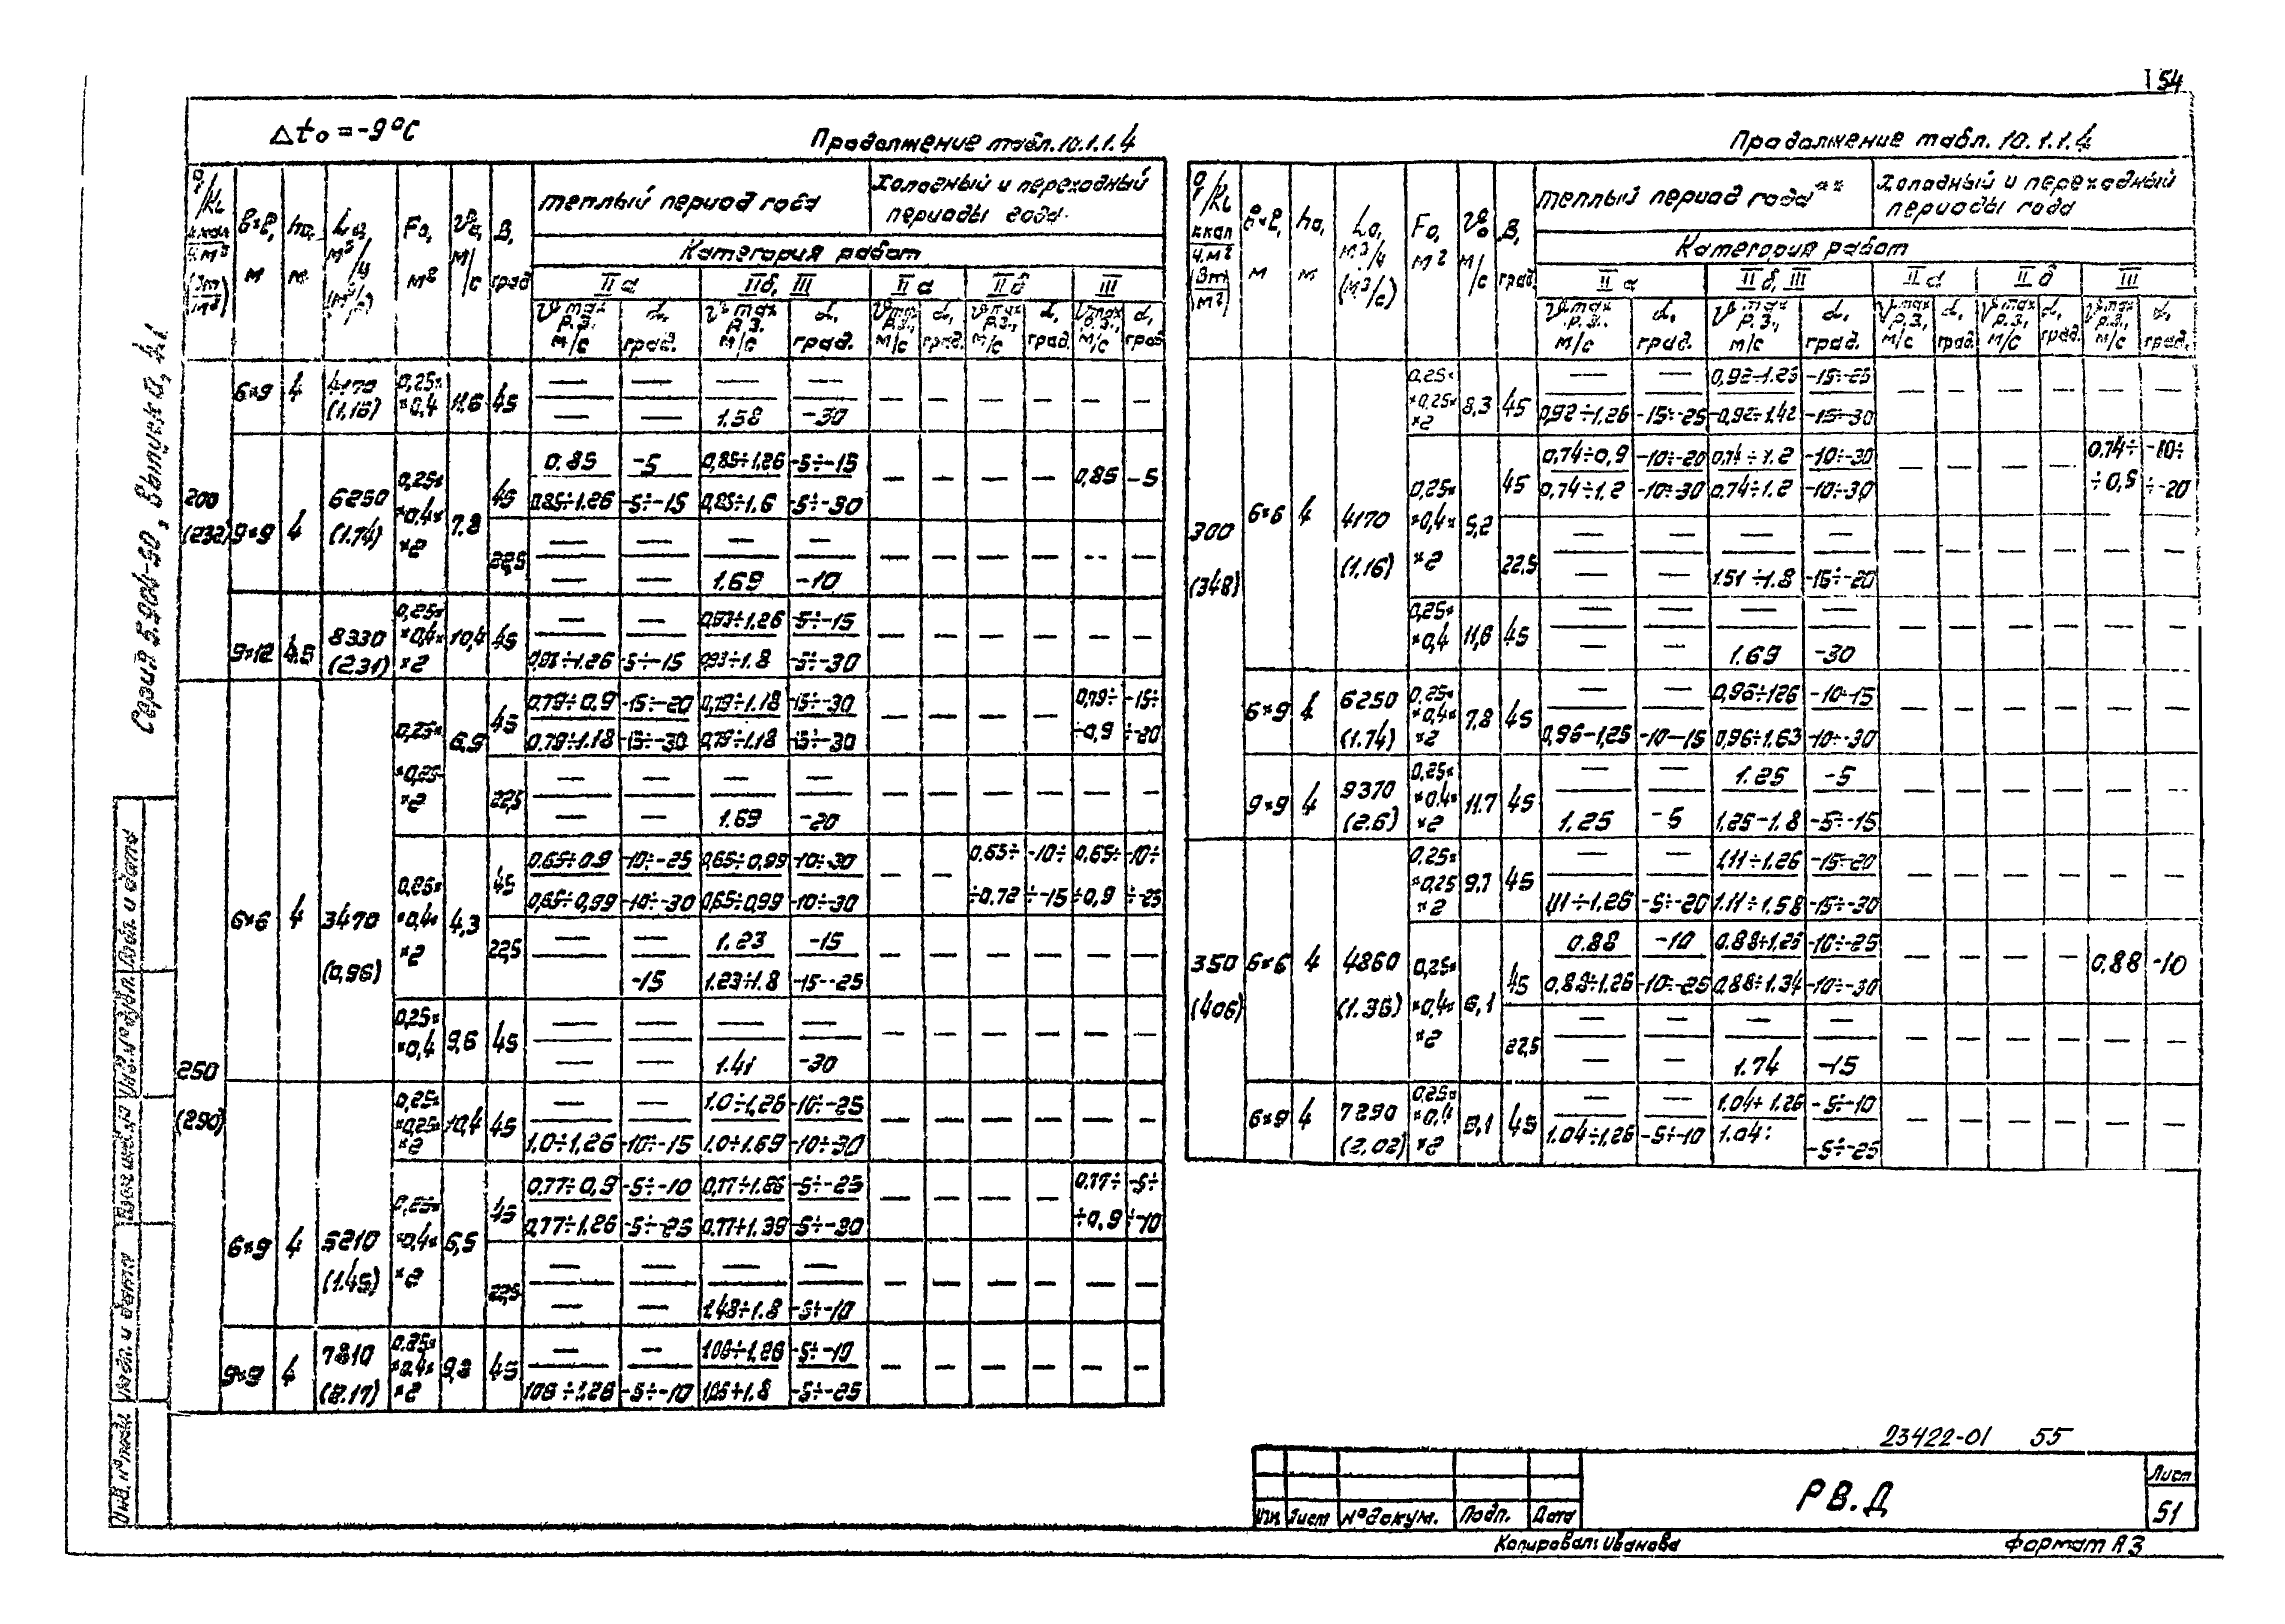 54
Δt₀ = -9°C
Продолжение табл. 10.1.1.4
теплый период года
Холодный и переходный
периоды года
Категория работ
II а
II б, III
II а
II б
III
6×9 4 4170 (1,16) 0,25× ×0,4 11,6 45
— — — —
— — 1.58 -30
200 (232)
9×9 4 6250 (1.74) 0,25× ×0,4× ×2 7.8
45 0.85 -5 0,85÷1,26 -5÷-15 — — — — 0,85 -5
0.85÷1.26 -5÷-15 0,85÷1.6 -5÷-30
22,5 — — — —
— — 1.69 -10
9×12 4.5 8330 (2.31) 0,25× ×0,4× ×2 10,4 45
— — 0,93÷1.26 -5÷-15
0,93÷1.26 -5÷-15 0,93÷1.8 -5÷-30
250 (290)
6×6 4 3470 (0,96)
0,25× ×0,25× ×2 6,9
45 0.79÷0.9 -15÷-20 0,79÷1.18 -15÷-30 — — — — 0,79÷ ÷0,9 -15÷ ÷-20
0.79÷1.18 -15÷-30 0.79÷1.18 -15÷-30
22,5 — — — —
— — 1.69 -20
0,25× ×0,4× ×2 4,3
45 0.65÷0.9 -10÷-25 0,65÷0,99 -10÷-30 — — 0,65÷ ÷0.72 -10÷ ÷-15 0,65÷ ÷0,9 -10÷ ÷-25
0,65÷0,99 -10÷-30 0,65÷0,99 -10÷-30
22,5 — — 1.23 -15
-15 1.23÷1.8 -15--25
0,25× ×0,4 9,6 45
— — — —
— — 1.41 -30
6×9 4 5210 (1.45)
0,25× ×0,25× ×2 10,4 45
— — 1.0÷1,26 -10÷-25
1,0÷1,26 -10÷-15 1.0÷1.69 -10÷-30
0,25× ×0,4× ×2 6,5
45 0.77÷0,9 -5÷-10 -5÷-25 — — — — 0.77÷ ÷0,9 -5÷ ÷-10
0,77÷1.26 -5÷-25 0.77÷1.39 -5÷-30
22,5 — — — —
— — 1,48÷1.8 -5÷-10
9×9 4 7810 (2.17) 0,25× ×0,4× ×2 9,8 45
— — 1.06÷1,26 -5÷-10
1.06÷1.26 -5÷-10 1,06÷1.8 -5÷-25
Продолжение табл. 10.1.1.4
теплый период года**
Холодный и переходный
периоды года
Категория работ
II а
II б, III
II а
II б
III
300 (348)
6×6 4 4170 (1,16)
0,25× ×0,25× ×2 8,3 45
— — 0,92÷1.26 -15÷-25
0,92÷1,26 -15÷-25 0,92÷1,42 -15÷-30
0,25× ×0,4× ×2 5,2
45 0,74÷0,9 -10÷-20 0,74÷1.2 -10÷-30 — — — — 0.74÷ -10÷ ÷-20
0,74÷1.2 -10÷-30 0,74÷1.2 -10÷-30
22,5 — — — —
— — 1.51÷1.8 -15÷-20
0,25× ×0,4 11,6 45
— — — —
— — 1.69 -30
6×9 4 6250 (1.74) 0,25× ×0,4× ×2 7,8 45
— — 0,96÷1,26 -10-15
0,96-1,25 -10-15 0,96÷1,63 -10÷-30
9×9 4 9370 (2.6) 0,25× ×0,4× ×2 11.7 45
— — 1.25 -5
1,25 -5 1,25-1.8 -5÷-15
350 (406)
6×6 4 4860 (1.36)
0,25× ×0,25 ×2 9,7 45
— — 1,11÷1.26 -15-20
1,11÷1,26 -5÷-20 1.11÷1.58 -15÷-30
0,25× ×0,4× ×2 6,1
45 0.88 -10 0,88÷1,26 -10÷-25 — — — — 0,88 -10
0,88÷1.26 -10÷-25 0,88÷1.34 -10÷-30
22,5 — — — —
— — 1.74 -15
6×9 4 7290 (2,02) 0,25× ×0,4 ×2 9,1 45
— — 1.04÷1.26 -5÷-10
1.04÷1,26 -5÷-10 1.04÷ -5÷-25
Серия 5.904-50, Выпуск 0, ч.1
Инв. № подл.
Подп. и дата
Подп. и дата
23422-01 55
РВ.Д
Лист
51
Изм Лист № докум. Подп. Дата
Копировал: Иванова
Формат А3